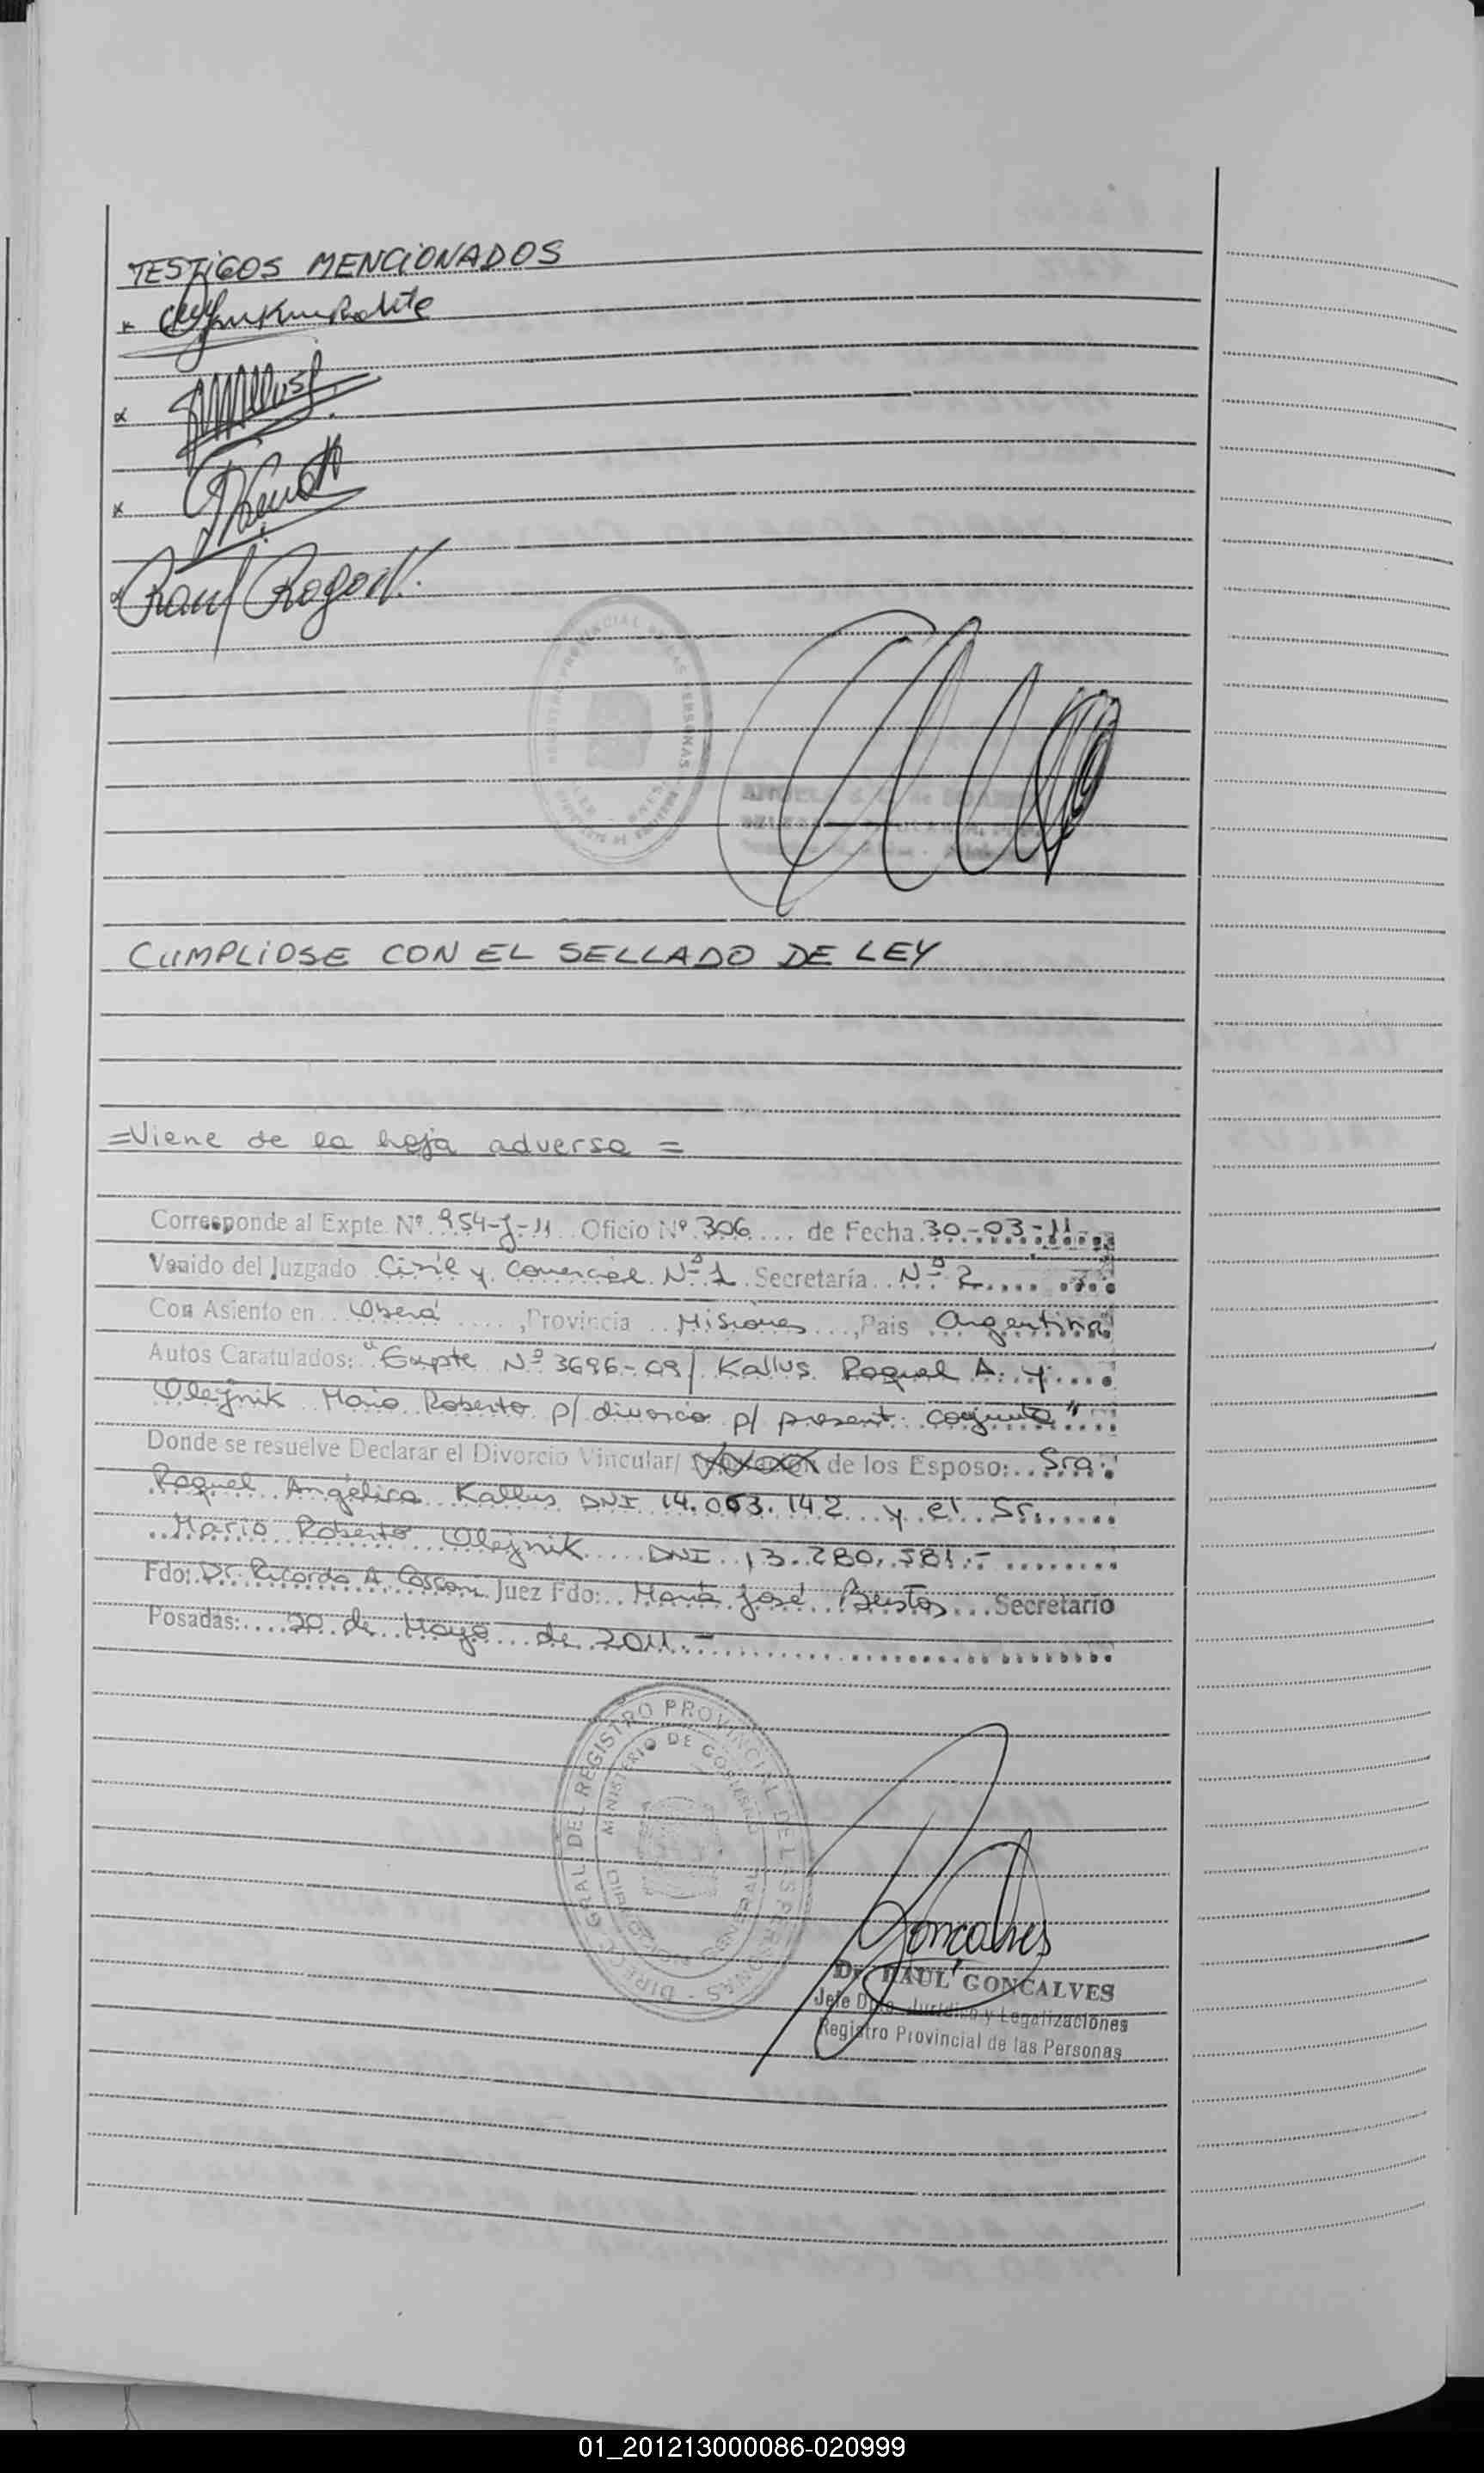 TESTIGOS MENCIONADOS
Raul Rogoski
REGISTRO PROVINCIAL DE LAS PERSONAS
CUMPLIOSE CON EL SELLADO DE LEY
=Viene de la hoja adversa =
Corresponde al Expte. Nº 954-J-11 Oficio Nº 306 de Fecha 30-03-11
Venido del Juzgado Civil y Comercial Nº 1 Secretaría Nº 2
Con Asiento en Oberá, Provincia Misiones, Pais Argentina
Autos Caratulados: "Expte Nº 3696-09/ Kallus Raquel A. y
Olejnik Mario Roberto p/ divorcio p/ present. conjunta"
Donde se resuelve Declarar el Divorcio Vincular/ de los Esposo: Sra.
Raquel Angélica Kallus DNI 14.063.142 y el Sr.
Mario Roberto Olejnik DNI 13.280.581.-
Fdo: Dr. Ricardo A. Juez Fdo: María José Bustos Secretario
Posadas: 20 de Mayo de 2011.-
DIREC. GRAL. DEL REGISTRO PROVINCIAL DE LAS PERSONAS
MINISTERIO DE GOBIERNO
DIRECCION GENERAL
Goncalves
Dr. RAUL GONCALVES
Jefe Dpto. Jurídico y Legalizaciones
Registro Provincial de las Personas
01_201213000086-020999